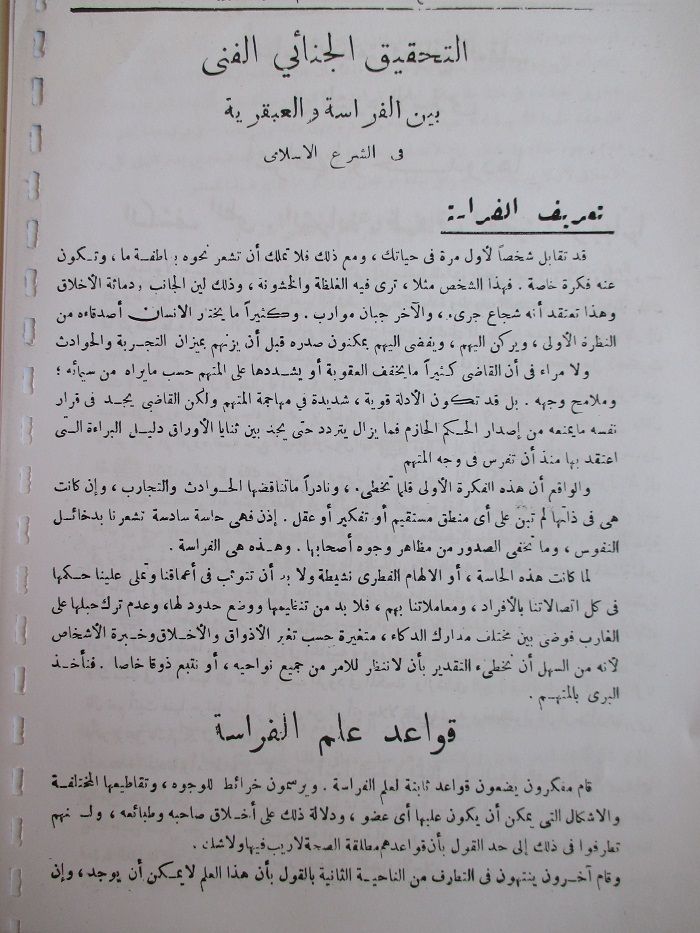 التحقيق الجنائي الفنى
بين الفراسة والعبقرية
فى الشرع الاسلامى
تعريف الفراسة
قد تقابل شخصاً لأول مرة فى حياتك ، ومع ذلك فلا تملك أن تشعر نحوه بعاطفة ما ، وتكون
عنه فكرة خاصة . فهذا الشخص مثلا ، ترى فيه الغلظة والخشونة ، وذلك لين الجانب ودماثة الأخلاق
وهذا تعتقد أنه شجاع جرىء ، والآخر جبان موارب . وكثيراً ما يختار الانسان أصدقاءه من
النظرة الأولى ، ويركن اليهم ، ويفضى اليهم بمكنون صدره قبل أن يزنهم بميزان التجربة والحوادث
ولا مراء فى أن القاضى كثيراً ما يخفف العقوبة أو يشددها على المتهم حسب مايراه من سيمائه ؛
وملامح وجهه . بل قد تكون الأدلة قوية ، شديدة فى مهاجمة المتهم ولكن القاضى يجد فى قرار
نفسه مايمنعه من إصدار الحكم الحازم فما يزال يتردد حتى يجد بين ثنايا الأوراق دليل البراءة التى
اعتقد بها منذ أن تفرس فى وجه المتهم
والواقع أن هذه الفكرة الأولى قلما تخطىء ، ونادراً ماتناقضها الحوادث والتجارب ، وإن كانت
هى فى ذاتها لم تبن على أى منطق مستقيم أو تفكير أو عقل . إذن فهى حاسة سادسة تشعرنا بدخائل
النفوس ، وما تخفى الصدور من مظاهر وجوه أصحابها . وهذه هى الفراسة .
لما كانت هذه الحاسة ، أو الالهام الفطرى نشيطة ولا بد أن تتوثب فى أعماقنا وتملى علينا حكمها
فى كل اتصالاتنا بالأفراد ، ومعاملاتنا بهم ، فلا بد من تنظيمها ووضع حدود لها ، وعدم ترك حبلها على
الغارب فوضى بين مختلف مدارك الذكاء ، متغيرة حسب تغير الأذواق والأخلاق وخبرة الأشخاص
لأنه من السهل أن نخطىء التقدير بأن لاننظر للامر من جميع نواحيه ، أو نتبع ذوقا خاصا . فنأخذ
البرى بالمتهم .
قواعد علم الفراسة
قام مفكرون يضعون قواعد ثابتة لعلم الفراسة . ويرسمون خرائط للوجوه ، وتقاطيعها المختلفة
والاشكال التى يمكن أن يكون عليها أى عضو ، ودلالة ذلك على أخلاق صاحبه وطبائعه ، ولكنهم
تطرفوا فى ذلك إلى حد القول بأن قواعدهم مطلقة الصحة لاريب فيها ولا شك .
وقام آخرون ينتهون فى التطرف من الناحية الثانية بالقول بأن هذا العلم لايمكن أن يوجد ، وإن